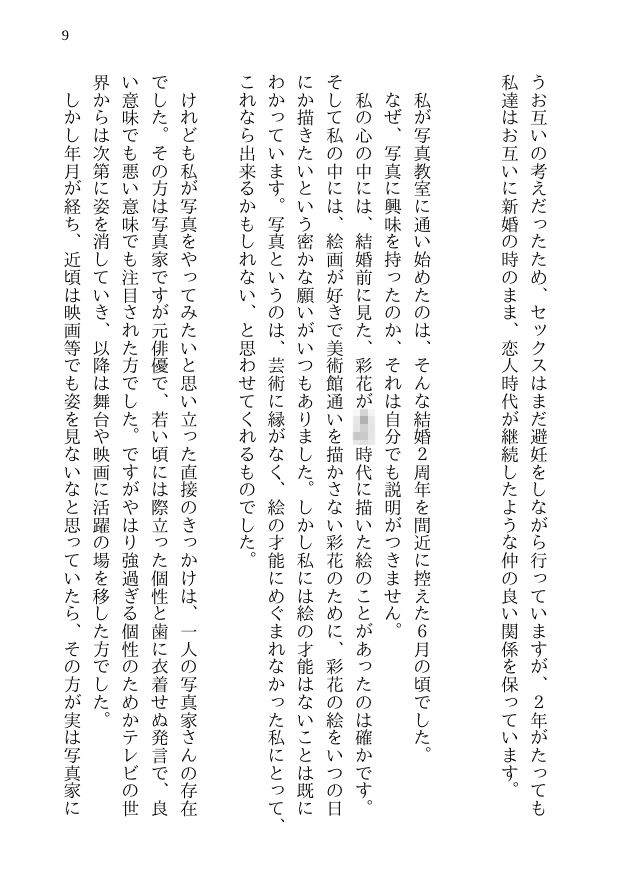 9
うお互いの考えだったため、セックスはまだ避妊をしながら行っていますが、２年がたっても
私達はお互いに新婚の時のまま、恋人時代が継続したような仲の良い関係を保っています。
私が写真教室に通い始めたのは、そんな結婚２周年を間近に控えた６月の頃でした。
なぜ、写真に興味を持ったのか、それは自分でも説明がつきません。
私の心の中には、結婚前に見た、彩花が時代に描いた絵のことがあったのは確かです。
そして私の中には、絵画が好きで美術館通いを描かさない彩花のために、彩花の絵をいつの日
にか描きたいという密かな願いがいつもありました。しかし私には絵の才能はないことは既に
わかっています。写真というのは、芸術に縁がなく、絵の才能にめぐまれなかった私にとって、
これなら出来るかもしれない、と思わせてくれるものでした。
けれども私が写真をやってみたいと思い立った直接のきっかけは、一人の写真家さんの存在
でした。その方は写真家ですが元俳優で、若い頃には際立った個性と歯に衣着せぬ発言で、良
い意味でも悪い意味でも注目された方でした。ですがやはり強過ぎる個性のためかテレビの世
界からは次第に姿を消していき、以降は舞台や映画に活躍の場を移した方でした。
しかし年月が経ち、近頃は映画等でも姿を見ないなと思っていたら、その方が実は写真家に